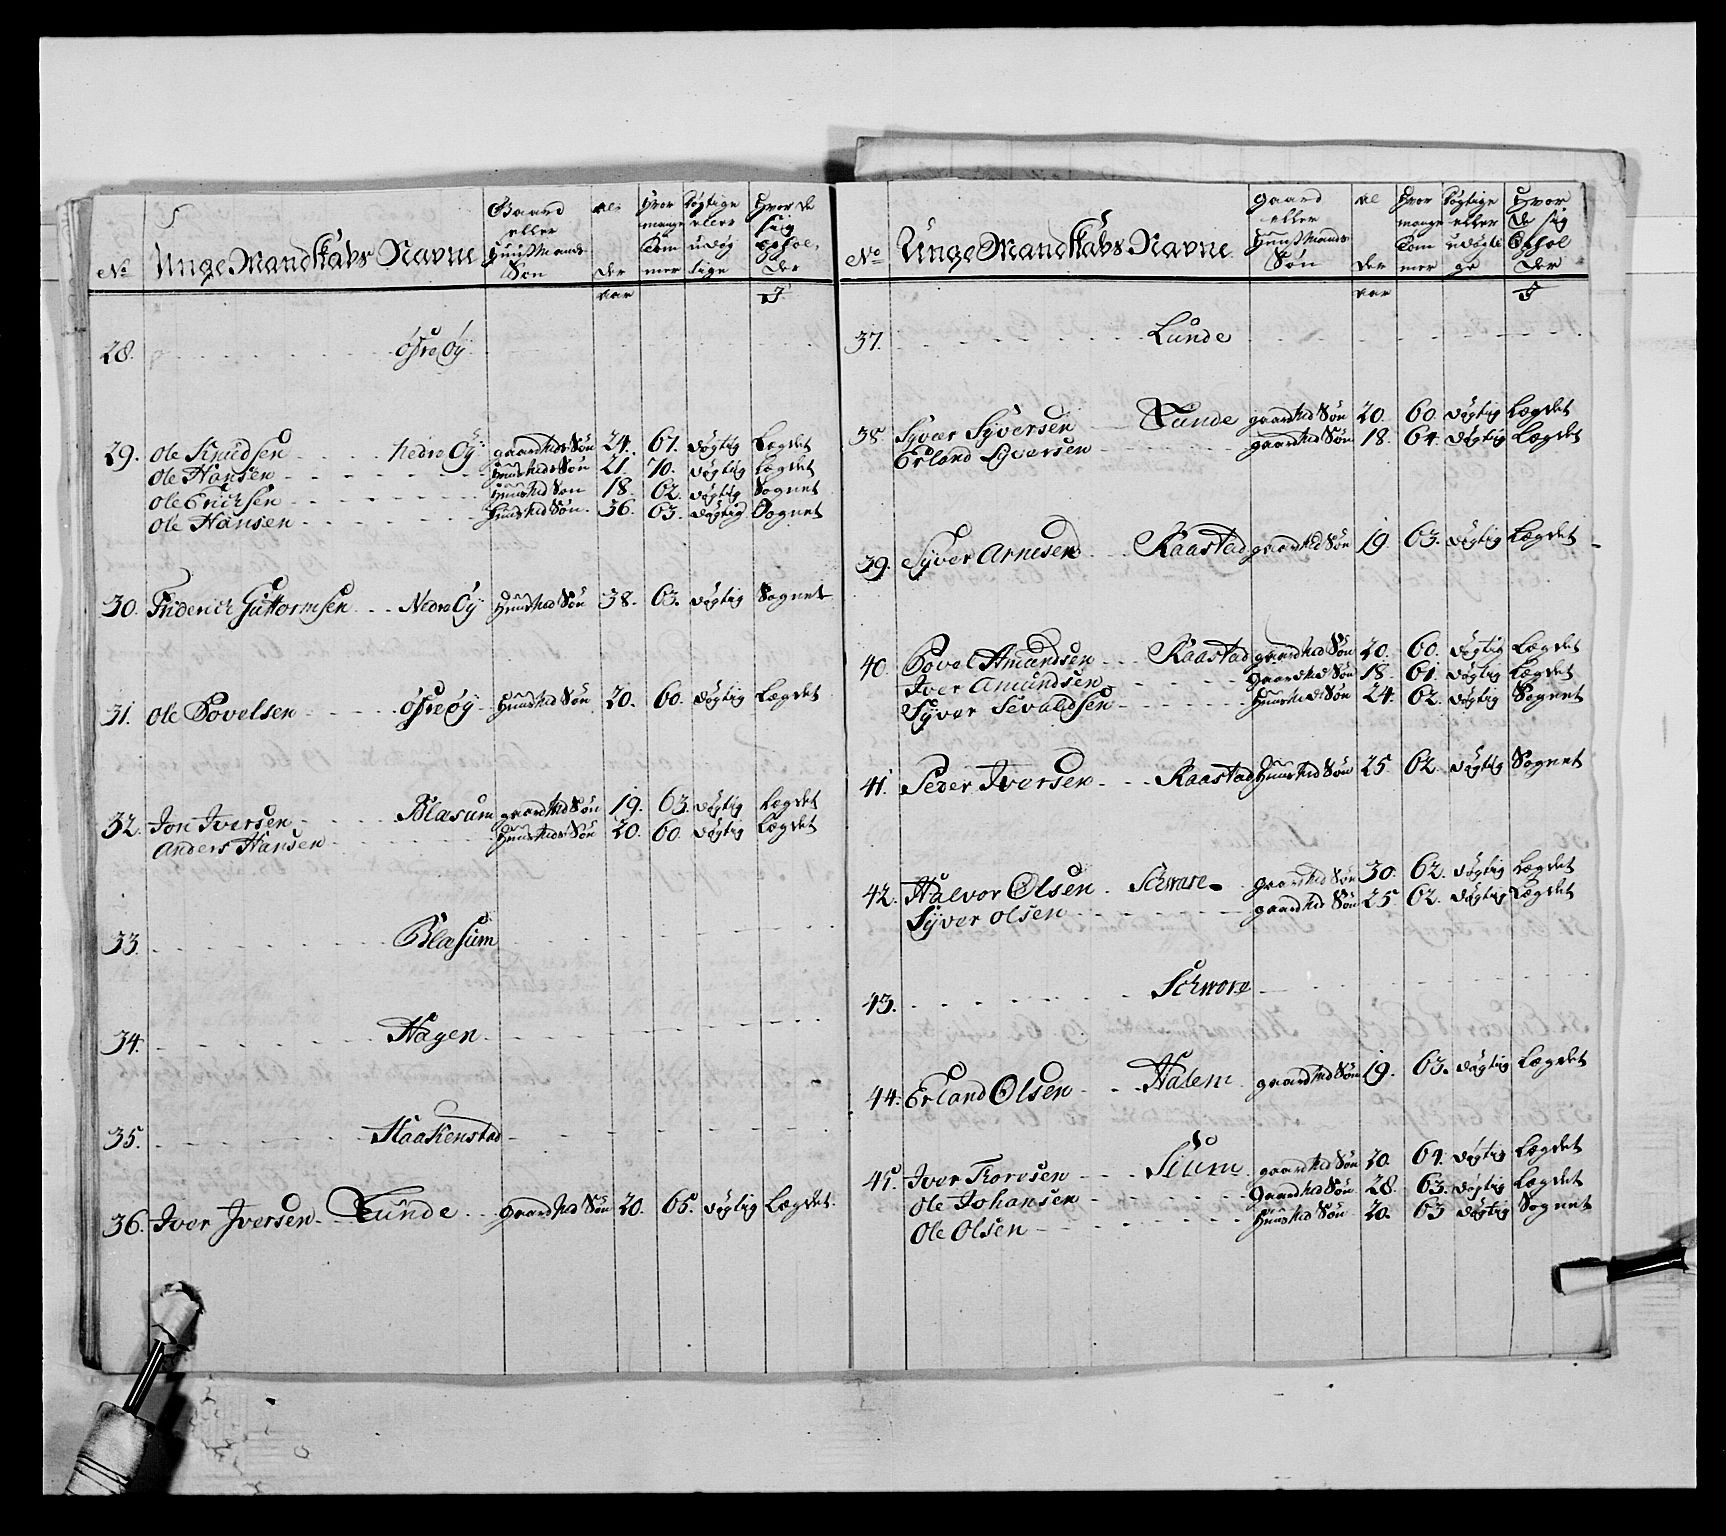 No Unge Mandskabs Navne Gaard eller Huusmands Søn Al der Hvor mange Tom mer Døgtige eller udøg tige Hvor de sig ophol der
aar I
28. Øfre Øy
29. Ole Knudsen Nedre Øy gaardMds Søn 24. 67. døgtig Lægdet
Ole Hansen HuusMds Søn 21. 70. døgtig Lægdet
Ole Erichsen HuusMd Søn 18. 62. døgtig Sognet
Ole Hansen HuusMd Søn 36. 63. døgtig Sognet
30. Friderich Guttormsen Nedre Øy HuusMd Søn 38. 63. døgtig Sognet
31. Ole Povelsen Øfre Øy HuusMd Søn 20. 60. døgtig Lægdet
32. Jon Iversen Blæsum gaardMd Søn 19. 63. døgtig Lægdet
Anders Hansen HuusMds Søn 20. 60. døgtig Lægdet
33. Blæsum
34. Hagen
35. Haakenstad
36. Iver Iversen Lunde gaardMd Søn 20. 65. døgtig Lægdet
No Unge Mandskabs Navne gaard eller Huusmands Søn Al der Hvor mange Tom mer Døgtige eller udøgti ge Hvor de sig Ophol der
aar I
37. Lunde
38. Syver Syversen Lunde gaardMd Søn 20. 60. døgtig Lægdet
Erland Syversen gaardMd Søn 18. 64. døgtig Lægdet
39. Syver Arnesen Kaastad gaardMd Søn 19. 63. døgtig Lægdet
40. Povel Amundsen Kaastad gaardMd Søn 20. 60. døgtig Lægdet
Iver Amundsen gaardMd Søn 18. 61. døgtig Lægdet
Syver Sevaldsen HuusMd Søn 24. 62. døgtig Sognet
41. Peder Iversen Kaastad HuusMd Søn 25. 62. døgtig Sognet
42. Halvor Olsen Schware gaardMd Søn 30. 62. døgtig Lægdet
Syver Olsen gaardMd Søn 25 62. døgtig Lægdet
43. Schware
44. Erland Olsen Halem gaardMd Søn 19. 63. døgtig Lægdet
45. Iver Thoresen Sium gaardMd Søn 20. 64. døgtig Lægdet
Ole Johansen gaardMd Søn 28. 63. døgtig Lægdet
Ole Olsen HuusMd Søn 20. 63 døgtig Sognet